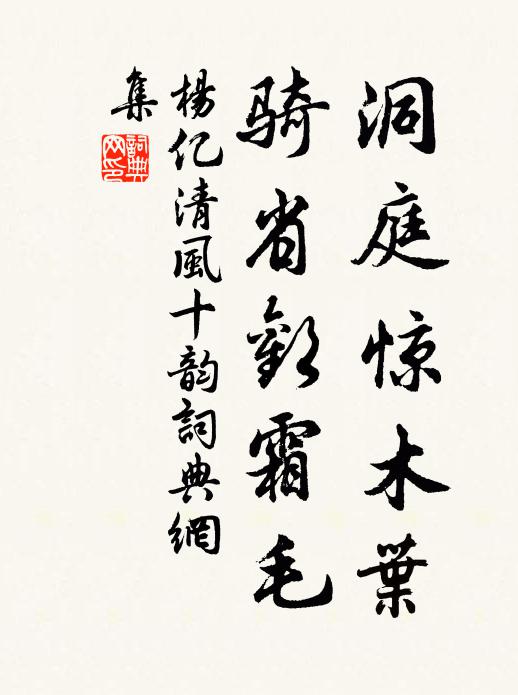 洞庭惊木葉
骑省歎霜毛
楊亿清風十韵詞典網
集
詞典网印